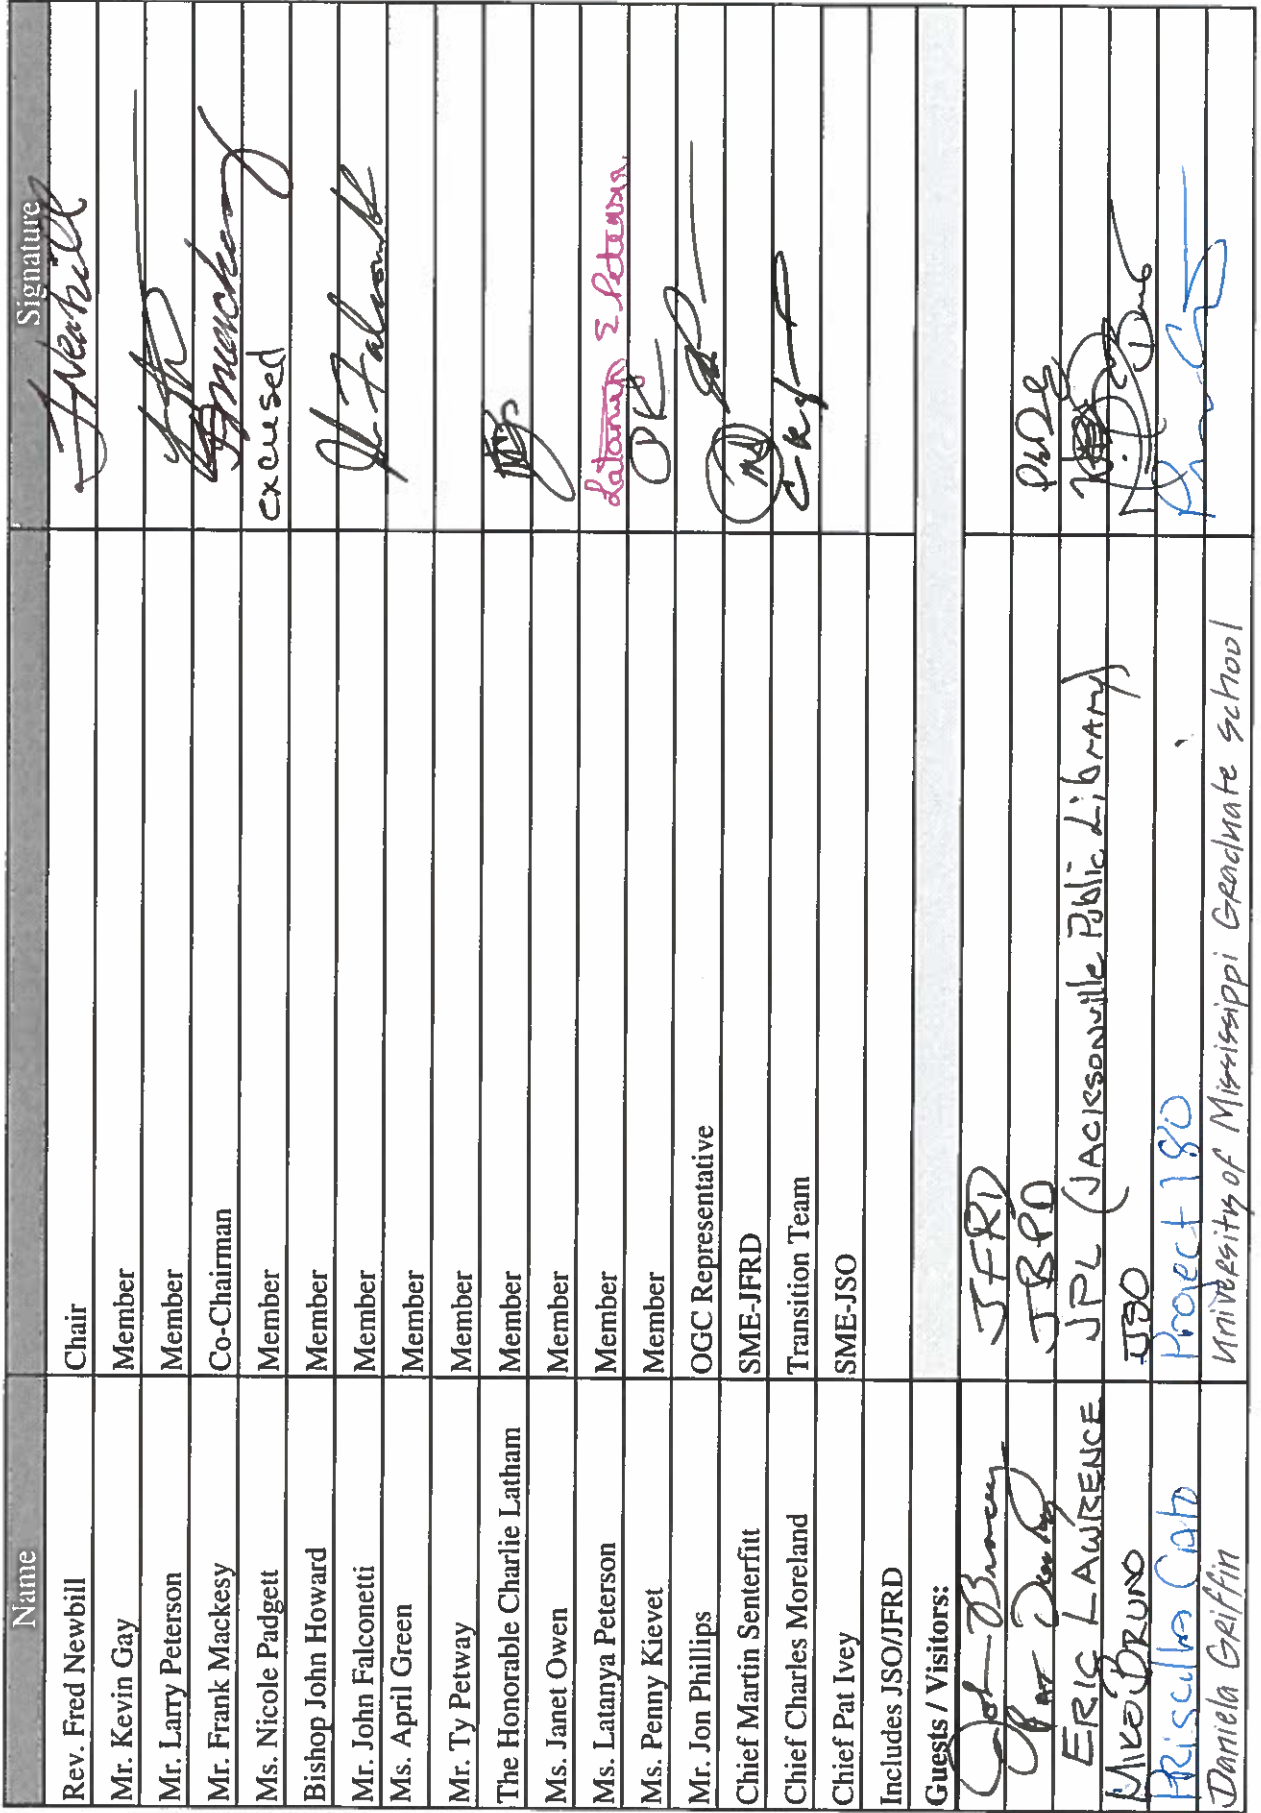 Name Signature
Rev. Fred Newbill Chair
Mr. Kevin Gay Member
Mr. Larry Peterson Member
Mr. Frank Mackesy Co-Chairman
Ms. Nicole Padgett Member excused
Bishop John Howard Member
Mr. John Falconetti Member
Ms. April Green Member
Mr. Ty Petway Member
The Honorable Charlie Latham Member
Ms. Janet Owen Member
Ms. Latanya Peterson Member
Ms. Penny Kievet Member PK
Mr. Jon Phillips OGC Representative
Chief Martin Senterfitt SME-JFRD
Chief Charles Moreland Transition Team
Chief Pat Ivey SME-JSO
Includes JSO/JFRD
Guests / Visitors:
JFRD
JBPD
ERIC LAWRENCE JPL (JACKSONville Public LibrARy)
MIKE BRUNO JSO
PRiscilla Project 180
Daniela Griffin University of Mississippi Graduate School